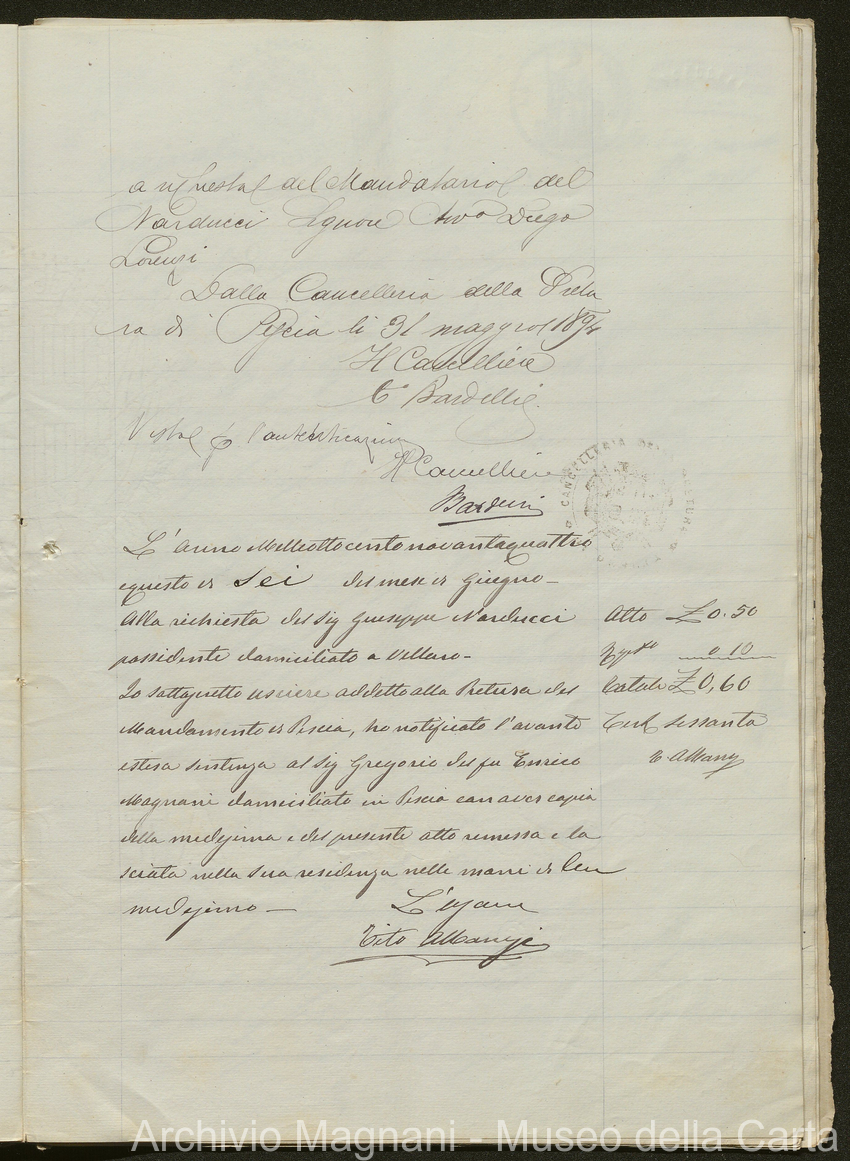 a richiesta del Mandatario del
Narducci Signore Avvo Diego
Lorenzi
Dalla Cancelleria della Pretu
ra di Pescia li 31 maggio 1894
Il Cancelliere
Bardelli
Visto per l'autenticazione
Il Cancelliere
L'anno Milleottocentonovantaquattro
e questo dì Sei del mese di Giugno -
Alla richiesta del Sig Giuseppe Narducci
possidente domiciliato a Vellano -
Io sottoscritto usciere addetto alla Pretura del
Mandamento di Pescia, ho notificato l'avanti
estesa sentenza al Sig Gregorio del fu Enrico
Magnani domiciliato in Pescia con aver copia
della medesima e del presente atto rimessa e la
sciata nella sua residenza nelle mani di lui
medesimo -
L'usciere
Tito
Atto £ 0.50
0.10
Totale £ 0,60
sessanta
CANCELLERIA DELLA PRETURA
Archivio Magnani - Museo della Carta